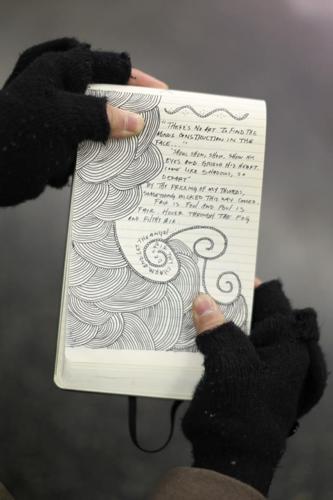 "THERE'S NO ART TO FIND THE
MINDS CONSTRUCTION IN THE
FACE..."
"SHOW, SHOW, SHOW, SHOW HIS
EYES AND GRIEVE HIS HEART.
COME LIKE SHADOWS, SO
DEPART"
BY THE PRICKING OF MY THUMBS,
SOMETHING WICKED THIS WAY COMES.
FAIR IS FOUL AND FOUL IS
FAIR. HOVER THROUGH THE FOG
AND FILTHY AIR.
CHARM AND LET THE ANGEL